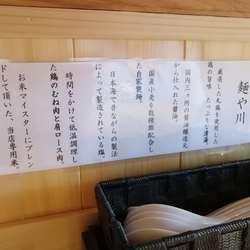 麺や川
厳選した丸鶏を使用した
鶏の旨味たっぷりな清湯。
国内三ヶ所の醤油醸造元
から仕入れた醤油。
国産小麦を数種類配合し
た自家製麺。
日本海で昔ながらの製法
によって製造されている塩。
時間をかけて低温調理し
た鶏のむね肉と肩ロース肉。
お米マイスターにブレン
ドして頂いた、当店専用米。